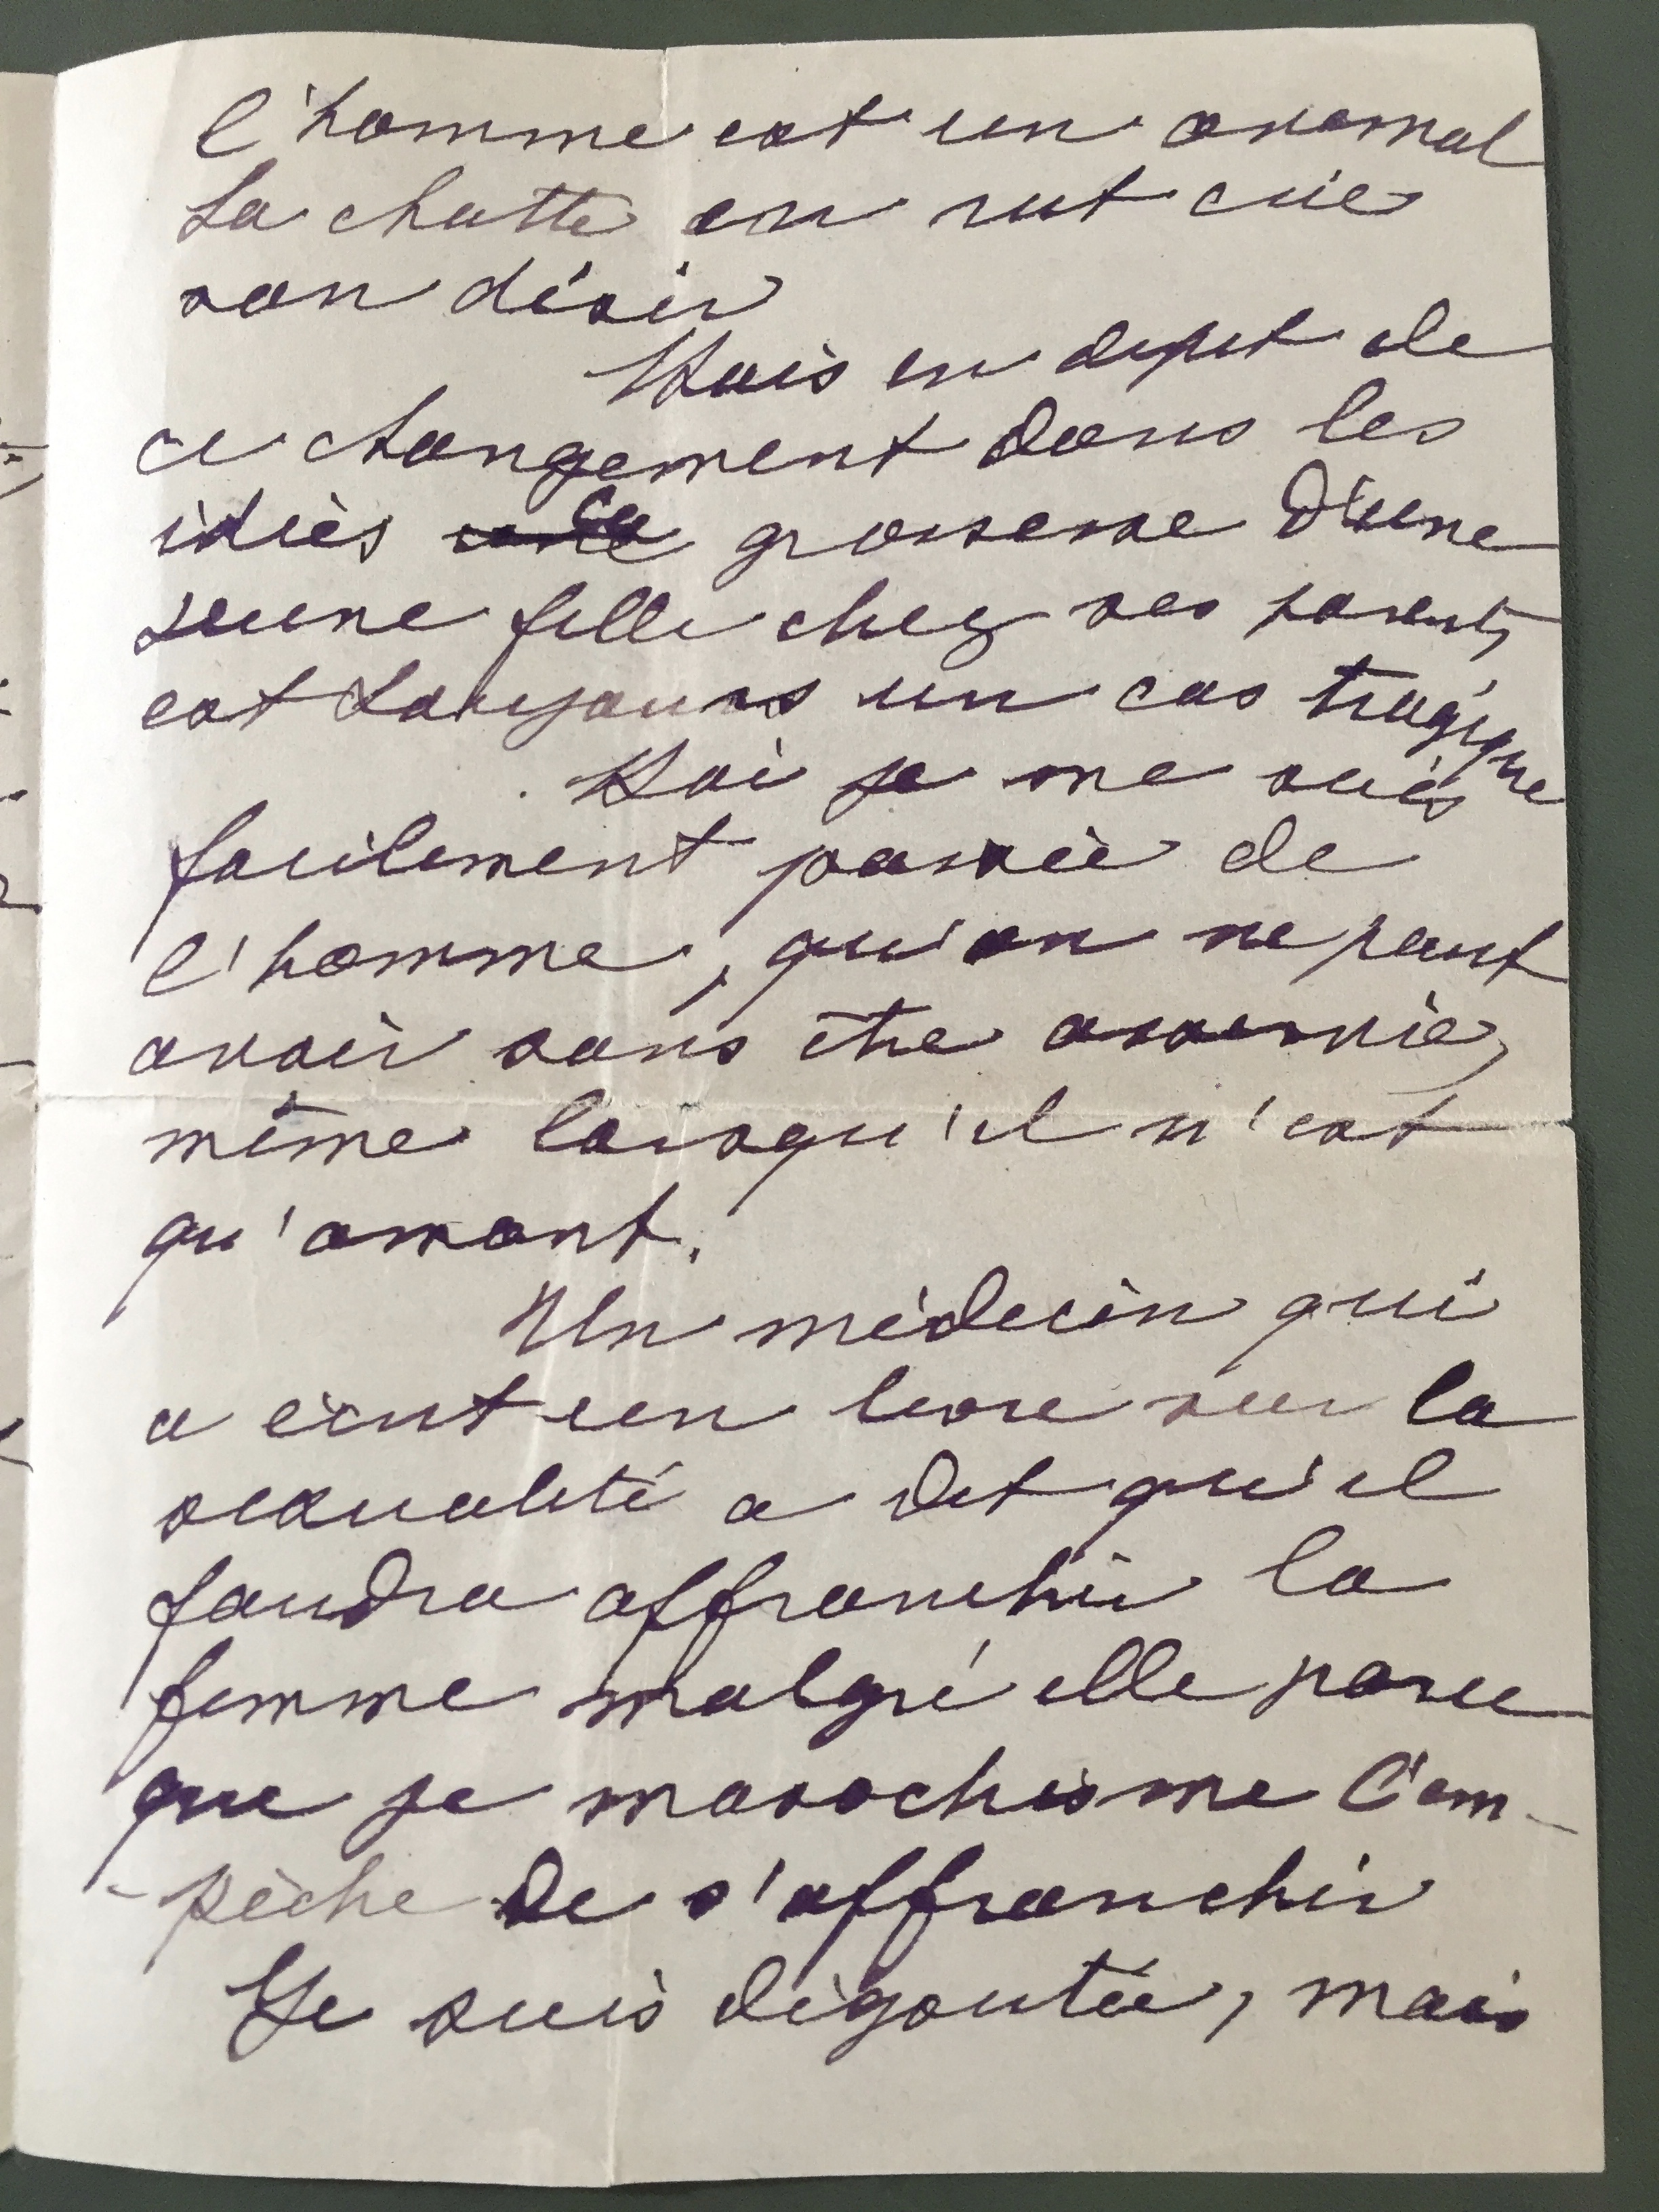 l'homme est un animal
La chatte en rut crie
son désir
Mais en depit de
ce changement dans les
idées la grossesse d'une
jeune fille chez ses parents
est toujours un cas tragique
Moi je me suis
facilement passée de
l'homme, qu'on ne peut
avoir sans être asservie,
même lorsqu'il n'est
qu'amant.
Un médecin qui
a écrit un livre sur la
sexualité a dit qu'il
faudra affranchir la
femme malgré elle parce
que se masochisme l'em-
-pèche de s'affranchir
Je suis dégoutée, mais